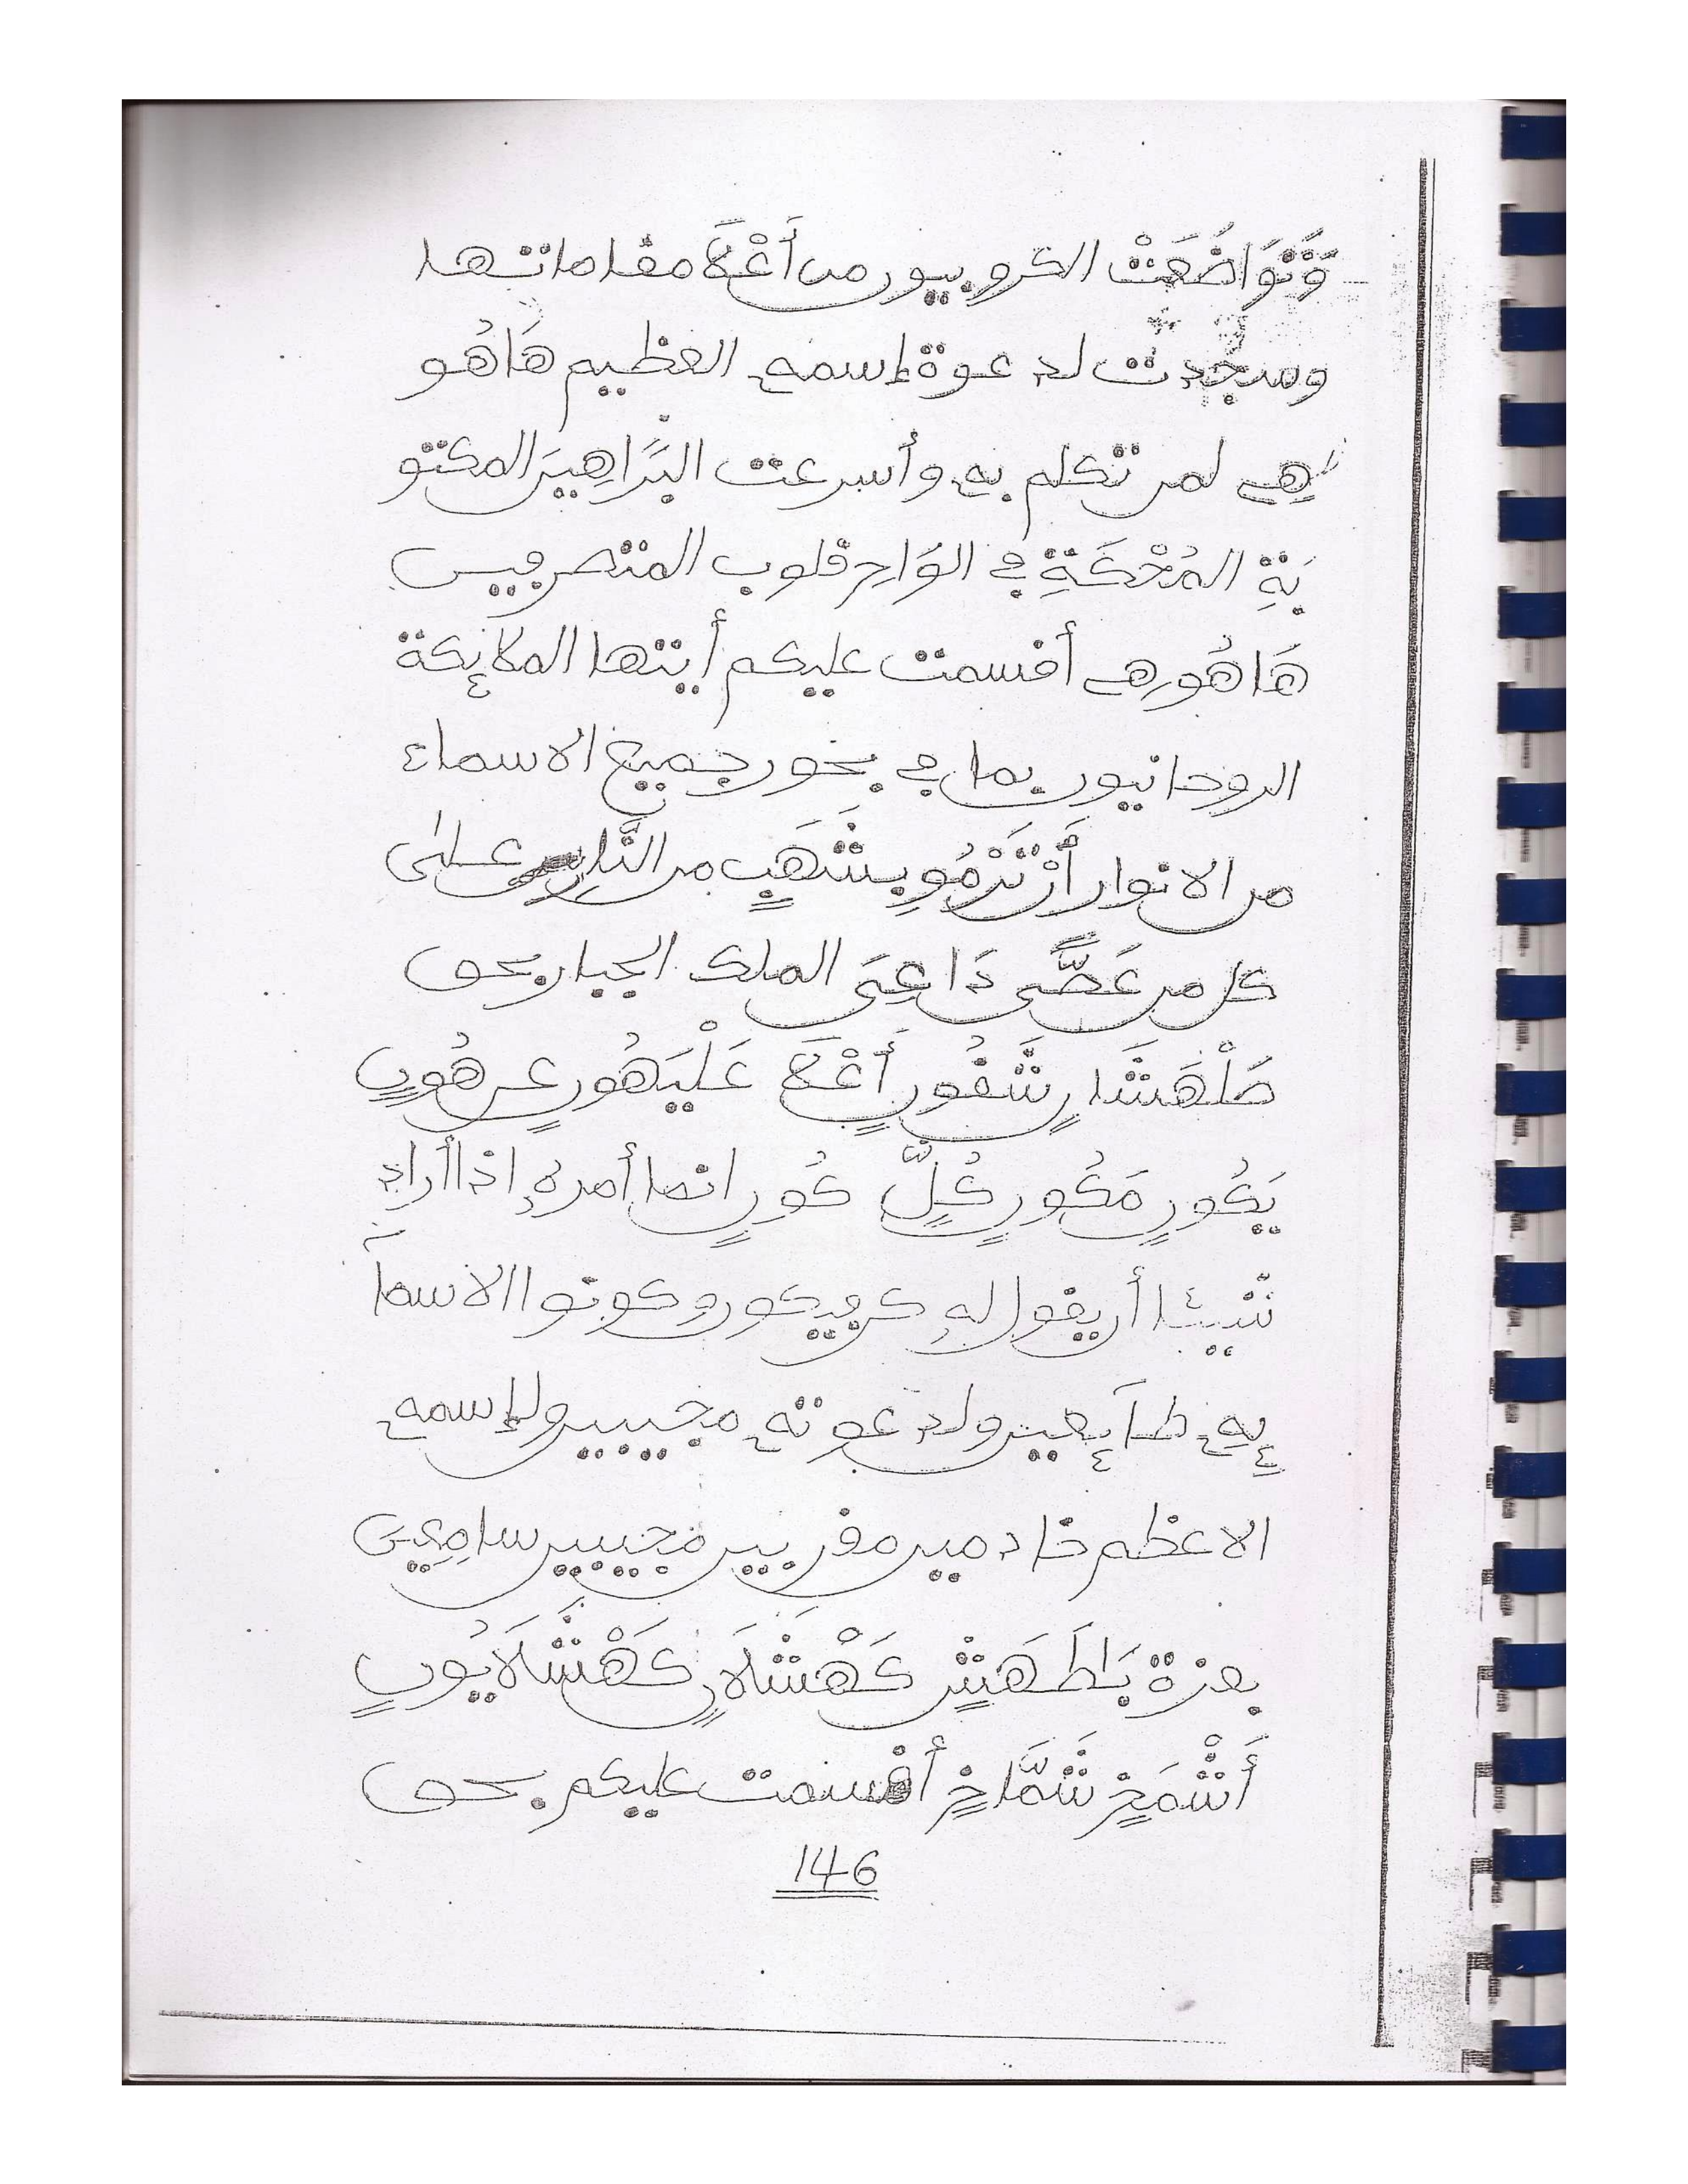 وَتَوَاضَعَتْ الكروبيون من أَعْلَا مقاماتها
وسجُدت لدعوة إسمه العظيم هَاهُو
هِي لمن تكلم به وأسرعت البَرَاهِينَ المكتو
بَةِ المُحْكَمَةِ في الوَاحِ قلوب المتصرفين
هَاهُورهي أقسمت عليكم أيتها الملائكة
الروحانيون بما في بخور جميع الاسماء
من الانوار أَنْ تَرْمُو بِشَهَبٍ من النَّار على
كل من عَصَّى دَاعِىَ الملك الجبار بحق
صَلْهَشَارٍ شَقُورٍ أَعْلَا عَلْيَهُورٍ عن هُورٍ
يَكُورٍ مَكُورٍ كُلٍّ كُورٍ انما أمره إذا أراد
شيئا أن يقول له كن فيكون وكونوا الاسمآ
ئِهِ طآئعين ولدعوته مجيبين ولإسمه
الاعظم خادمين مقربين مجيبين سامِعِينَ
بعزة بَاطَهَشٍ كَهْشَلَارٍ كَهْشَلَايُورٍ
أَشْمَخٍ شَمَّاخٍ أقسمت عليكم بحق
146